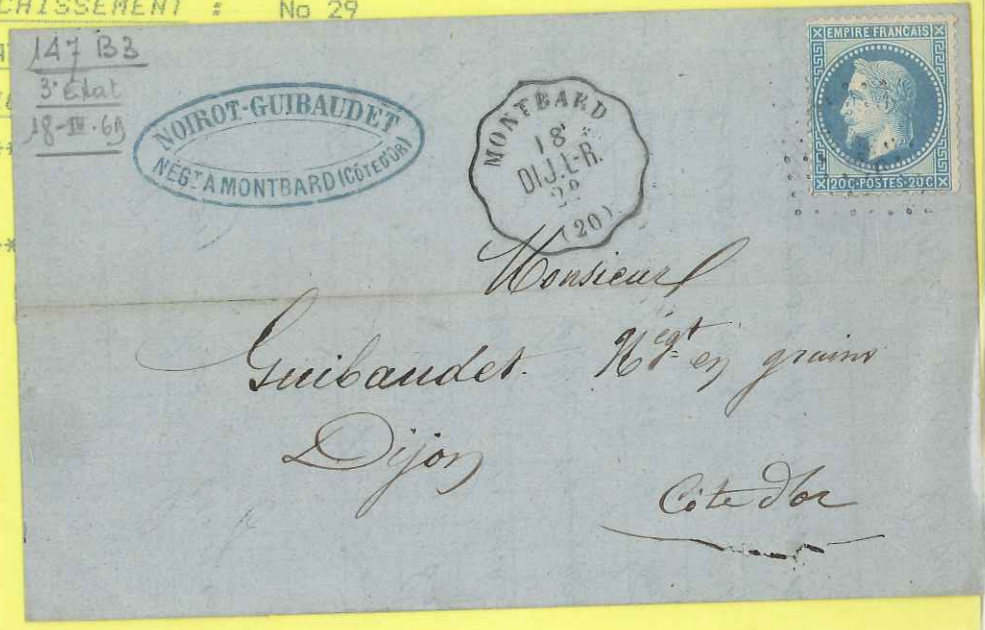 CHISSEMENT : No 29
147 B3
3e état
18-III-69
NOIROT-GUIBAUDET
NÉGT A MONTBARD (CÔTE D'OR)
MONTBARD
18
DIJ. L-R.
22
(20)
EMPIRE FRANCAIS
20C·POSTES·20C
Monsieur
Guibaudet. Négt en grains
Dijon
Côte d'or